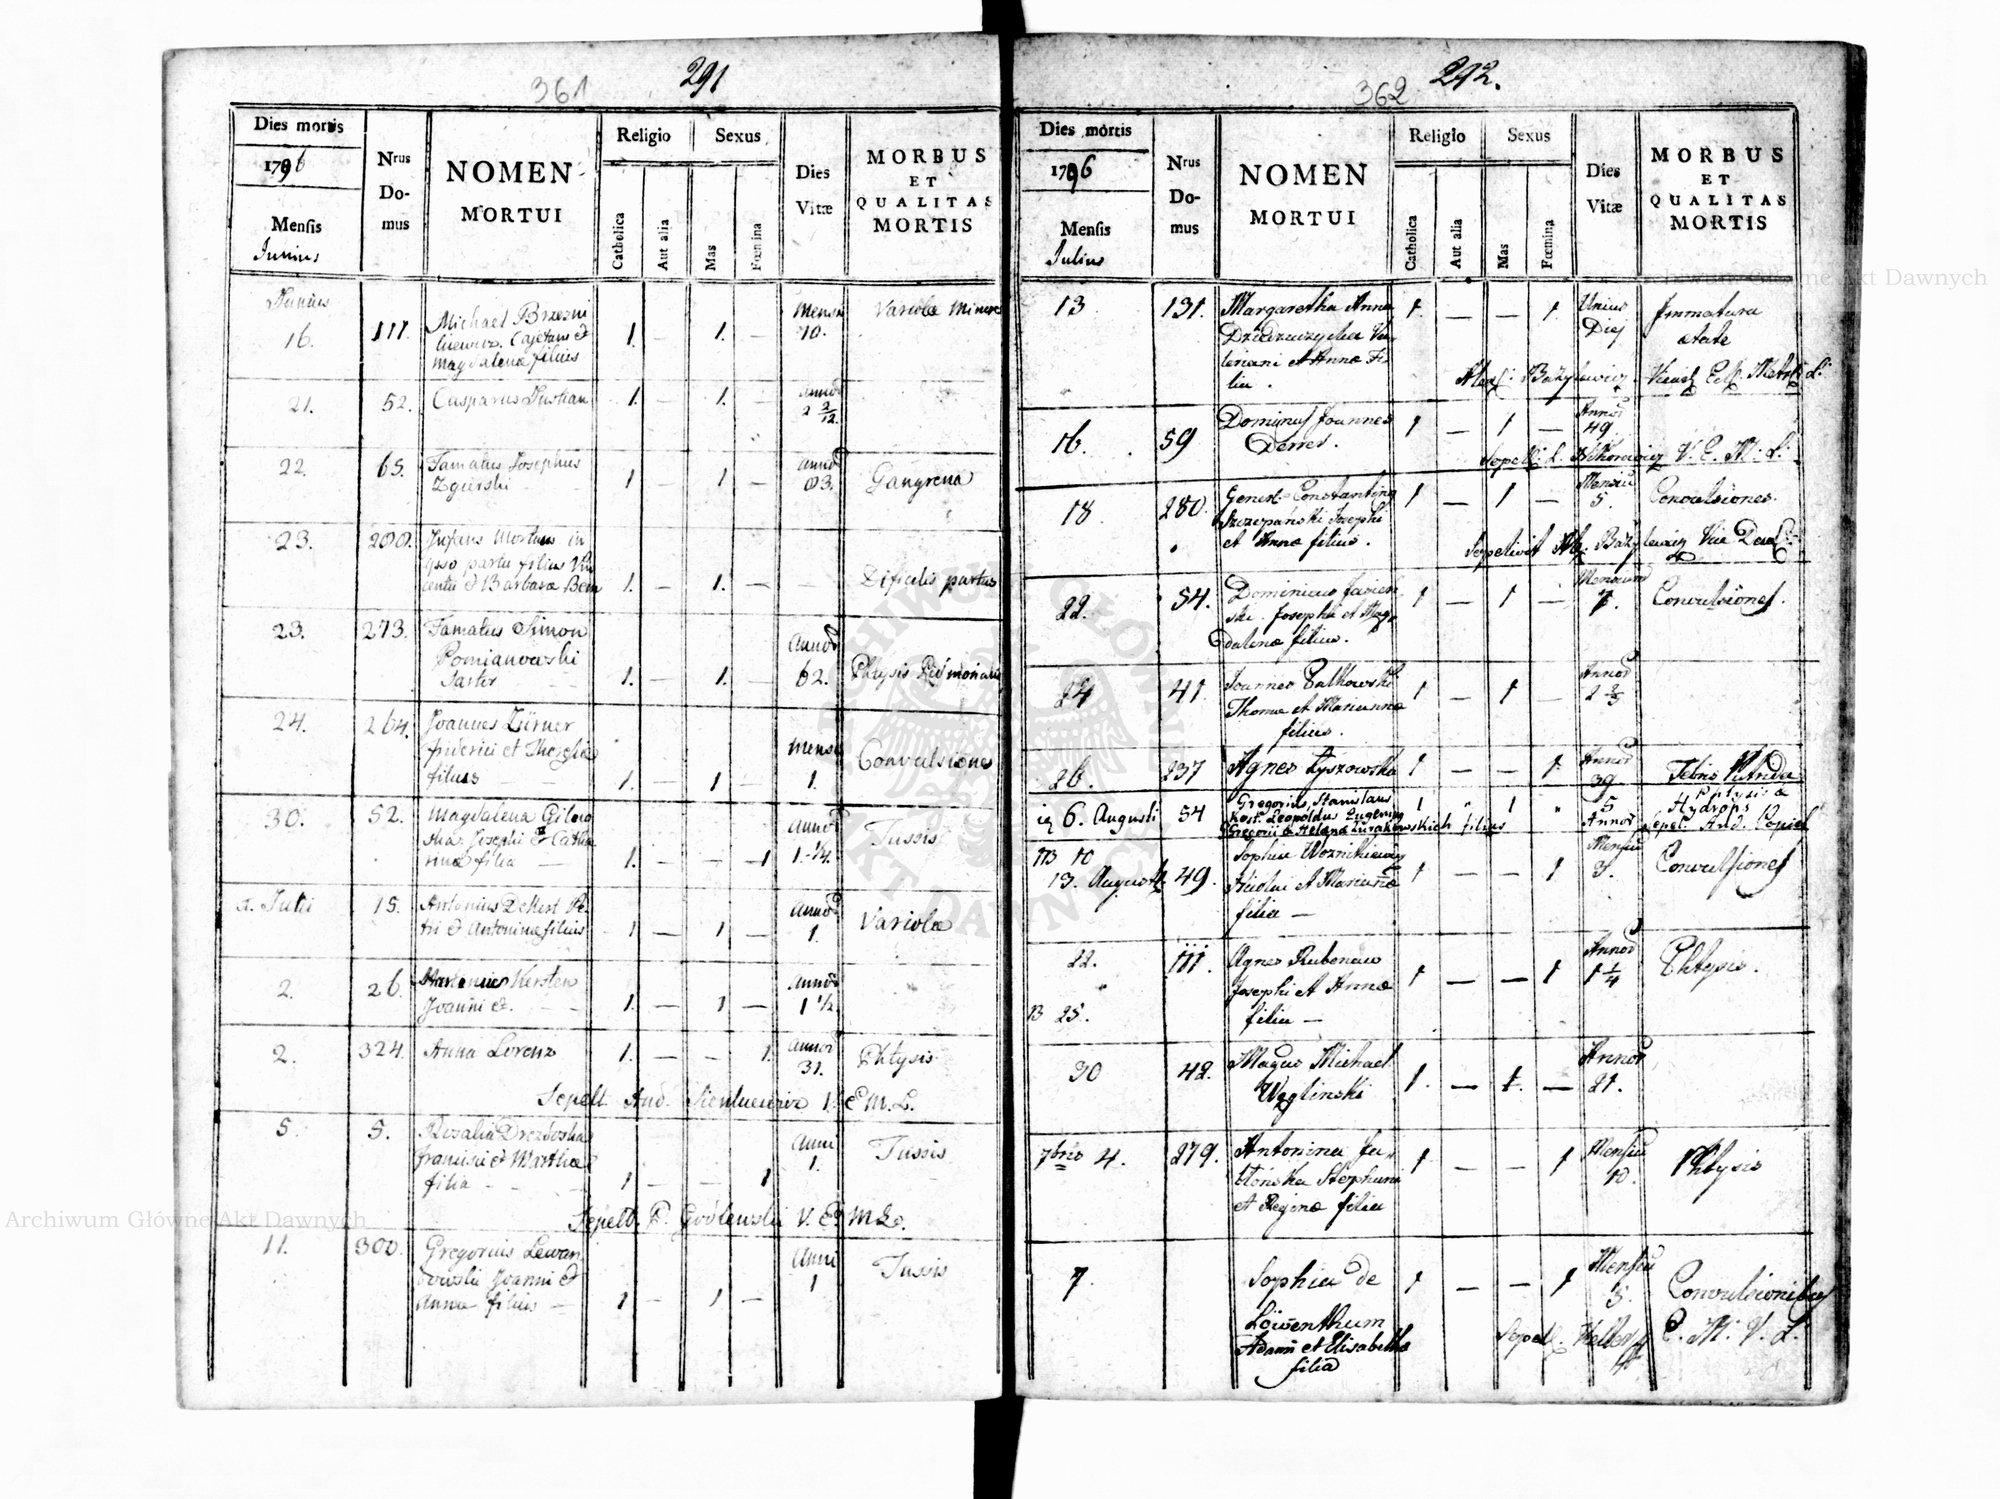 361 291
Dies mortis
1796
Mensis
Junius
Nrus
Do-
mus
NOMEN
MORTUI
Religio
Catholica
Aut alia
Sexus
Mas
Fœmina
Dies
Vitæ
MORBUS
ET
QUALITAS
MORTIS
Junius
16. 111. Michael
Cajetani et
Magdalena filius 1. — 1. — Mens
10. Variolæ Minore
21. 52. Casparus 1. — 1. — Annor
2 2/12.
22. 65. Famatus Josephus
Zgurski 1 — 1 — Annor
63. Gangrena
23. 200. Infans Mortuus in
ipso partu filius Vin
centii et Barbaræ Bem 1. — 1. — Dificilis partus
23. 273. Famatus Simon
Pomianowski
Sartor 1. — 1. — Annor
62. Phtysis Pulmonaris
24. 264. Joannes Zürner
friderici et Theresiæ
filius 1. — 1 — Mensis
1. Convulsiones
30. 52. Magdalena
Josephi et Catha
rinæ filia — 1. — — 1 Annor
1.-1/4. Tussis
a. Julii 15. Antonius Dekert Pe-
tri et Antoninæ filius 1 — 1 — Annor
1. Variolæ
2. 26. Antonius Kersten
Joanni et. 1. — 1 — Annor
1 1/2.
2. 324. Anna Lorenz 1. — — 1. Annor
31. Phtysis
Sepelt. And. V. E. M. L.
5. 5. Rosalia
francisci et Marthæ
filia 1 — — 1 Anni
1. Tussis
Sepelt. P. Godlewski V. E. M. L.
11. 300. Gregorius Lewan
dowski Joanni et
Annæ filius — 1 — 1 — Anni
1 Tussis
362 292.
Dies mortis
1796
Mensis
Julius
Nrus
Do-
mus
NOMEN
MORTUI
Religio
Catholica
Aut alia
Sexus
Mas
Fœmina
Dies
Vitæ
MORBUS
ET
QUALITAS
MORTIS
13 131. Margaretha Anna
Va-
leriani et Annæ Fi-
lia. 1 — — 1. Unius
Diei Immatura
ætate
16. 59 Dominus Joannes
Derres. 1 — 1 — Annor
49.
Sepelt: V. E. M: L:
18. 280. Generl: Constantinus
Szczepański Josephi
et Annæ filius. 1 — 1 — Mensiu
5. Convulsiones.
Sepelivit
22. 54. Dominicus
Josephi et Mag-
dalenæ filius. 1 — 1 — Mensium
7. Convulsiones.
24 41. Joannes
Thomæ et Mariannæ
filius. 1 — 1 — Annor
2 2/3
26. 237 Agnes Łyszowska 1 — — 1. Annor
39 Febris Putrida
6. Augusti 54 Gregorius, Stanislaus
Kost. Leopoldus Eugenius
Gregorii et Helenæ Żurakowskich filius 1 " 1 " 5
Annor Phtysis et
Hydrops
Sepel: And.
10
13. Augusti 49. Sophia
Nicolai et Mariannæ
filia — 1 — — 1 Mensiu
3. Convulsiones
22. 111. Agnes Rubenau
Josephi et Annæ
filia — 1 — — 1 Annor
1 1/4 Phtysis.
25.
30 42. Magus Michael
Węglinski 1. — 1. — Annor
21.
7bris 4. 279. Antonina
Stephani
et Reginæ filia 1 — — 1 Mensiu
10. Phtysis
7. Sophia de
Löwenthum
Adami et Elisabethæ
filia 1 — — 1 Mensiu
3. Convulsionibus
Sepel: E. M. V. L.
Archiwum Główne Akt Dawnych
Archiwum Główne Akt Dawnych
ARCHIWUM GŁÓWNE AKT DAWNYCH